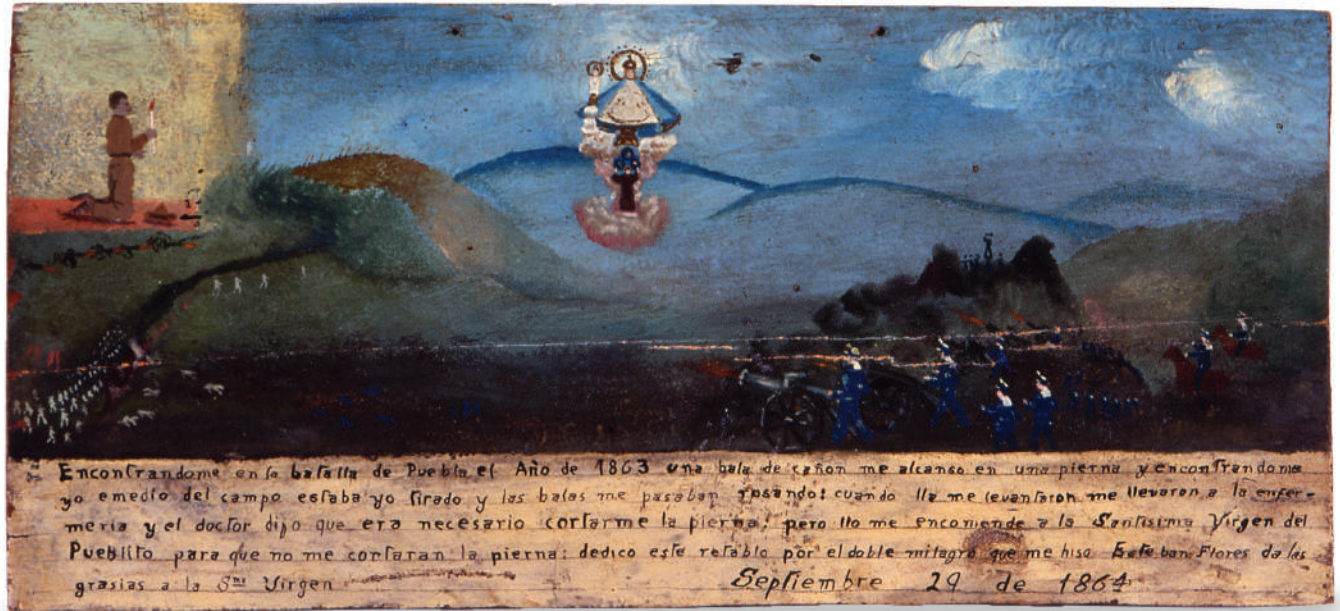 Encontrandome en la batalla de Puebla el Año de 1863 una bala de cañon me alcanso en una pierna y encontrandome
yo emedio del campo estaba yo tirado y las balas me pasaban rosando: cuando lla me levantaron me llevaron a la enfer-
meria y el doctor dijo que era necesario cortarme la pierna; pero llo me encomende a la Santisima Virgen del
Pueblito para que no me cortaran la pierna: dedico este retablo por el doble milagro que me hiso Esteban Flores da las
grasias a la Smi Virgen Septiembre 29 de 1864